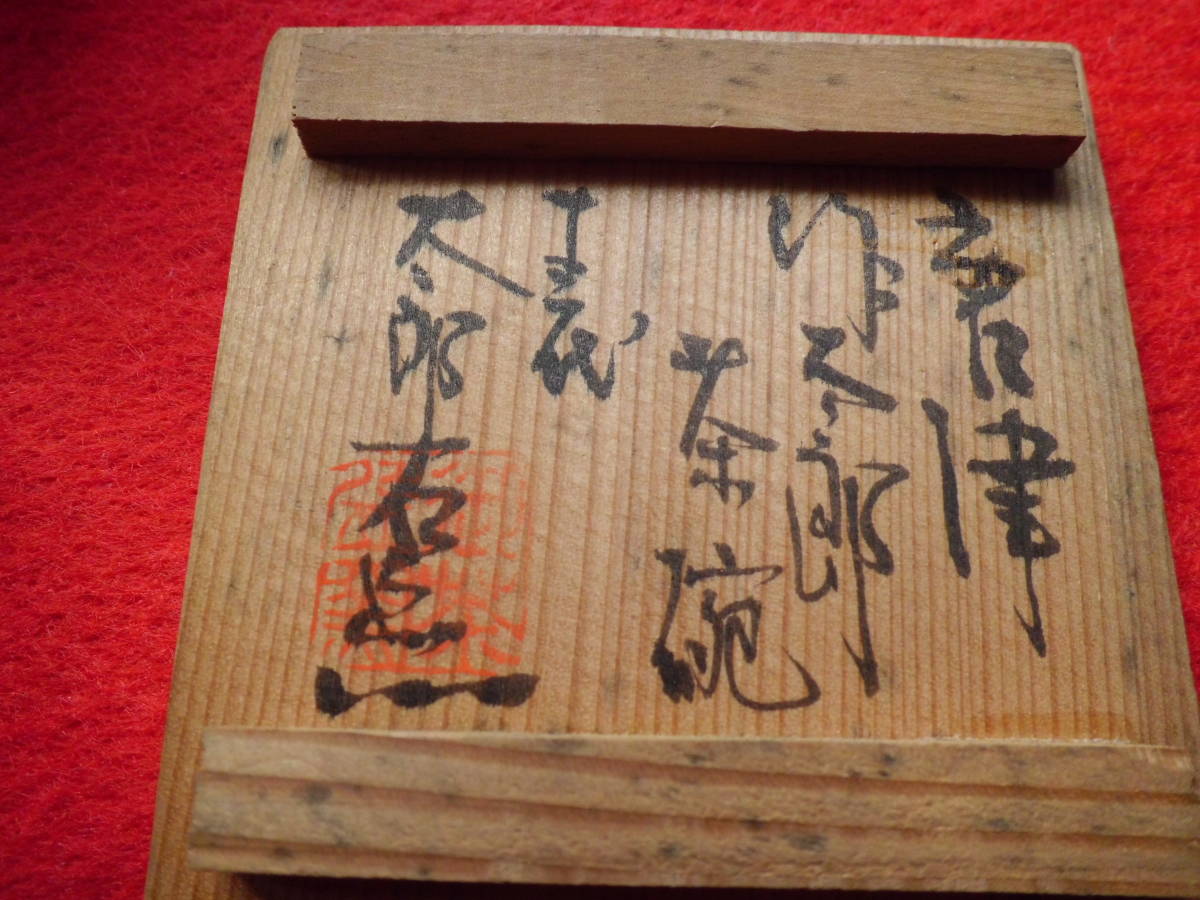 唐津
太郎
茶碗
十三代
太郎右衛門